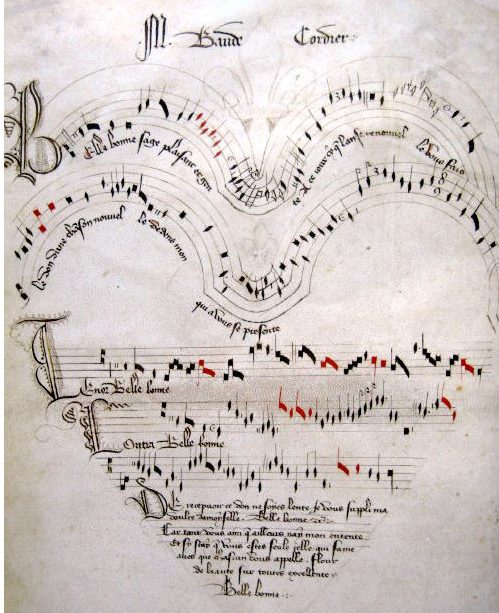 M. Baude Cordier
Belle bonne sage plaisant et gen
te A ce jour cy que lan se renouvel
le vous fais
le don dune chanson nouvel
le Dedens mon
qui a vous se presente
Tenor Belle bonne
Contra Belle bonne
De recepuoir ce don ne soyes lente Je vous suppli ma
doulce damoyselle Belle bonne
Car tant vous aim quailleurs nay mon entente
Et si scay que vous estes seule celle qui fame
aues que chascun vous appelle Flour
de beaute sur toutes excellente
Belle bonne